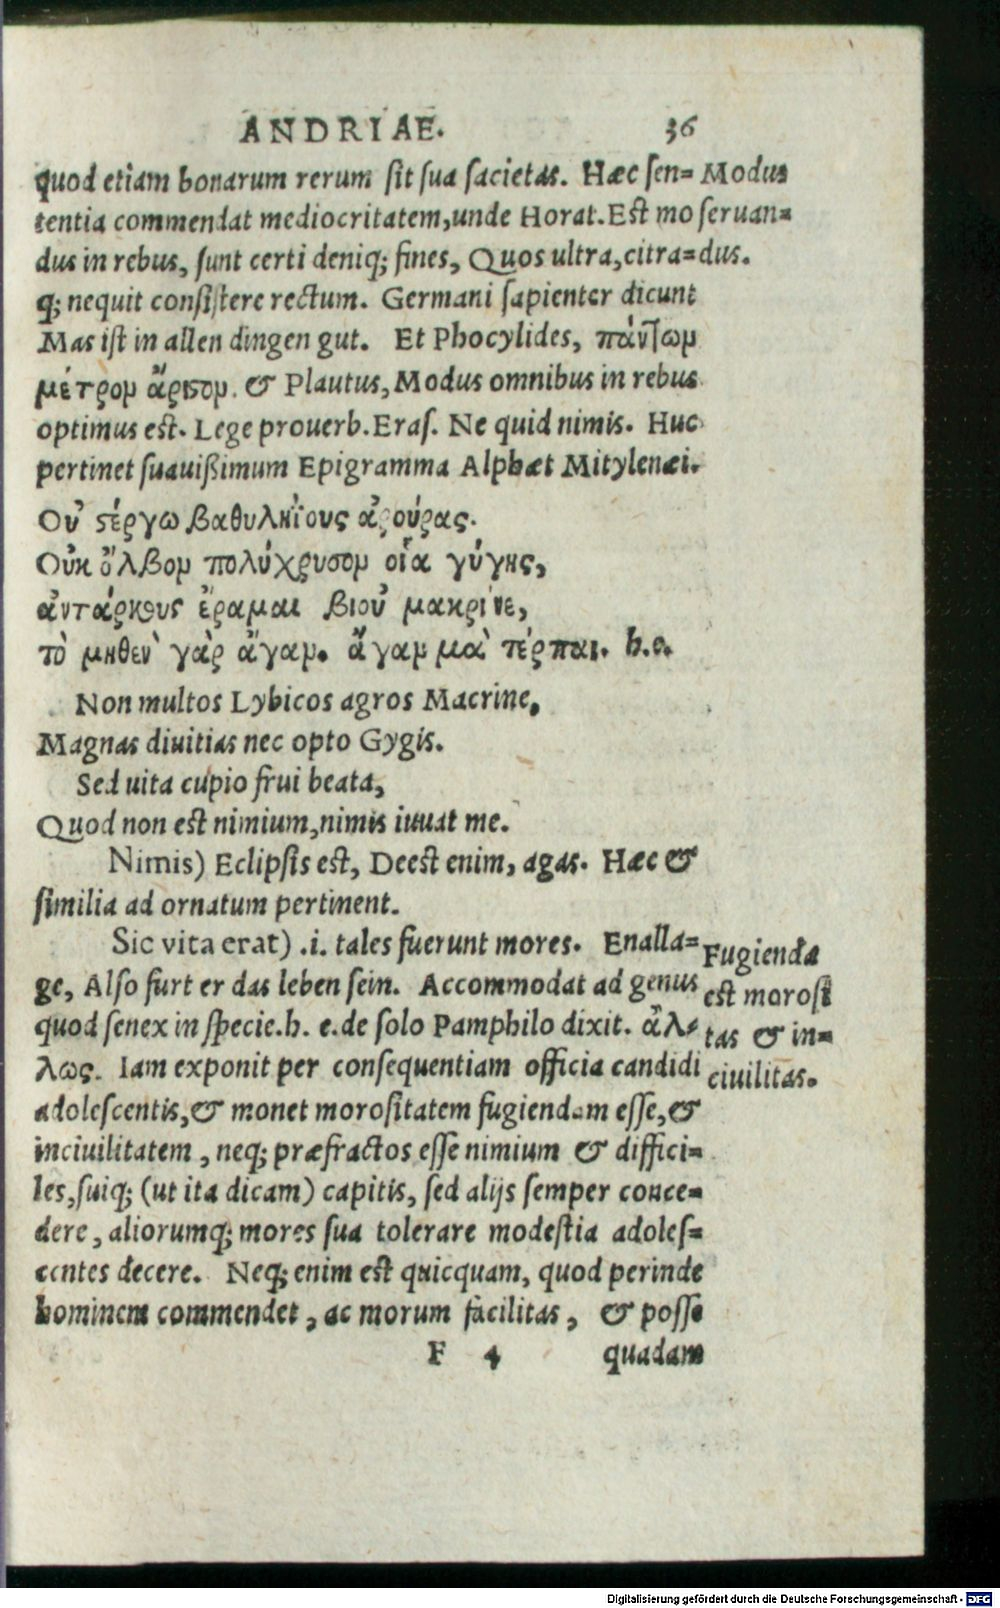 ANDRIAE. 36
quod etiam bonarum rerum sit sua sacietas. Hæc sen=
tentia commendat mediocritatem, unde Horat. Est mo
dus in rebus, sunt certi deniq; fines, Quos ultra, citra=
q; nequit consistere rectum. Germani sapienter dicunt
Mas ist in allen dingen gut. Et Phocylides, πάντωμ
μέτρομ ἄριστομ. & Plautus, Modus omnibus in rebus
optimus est. Lege prouerb. Eras. Ne quid nimis. Huc
pertinet suauißimum Epigramma Alphæt Mitylenæi.
Οὐ στέργω βαθυληΐους ἀρούρας.
Οὐκ ὄλβομ πολύχρυσομ οἷα γύγης,
ἀυτάρκους ἔραμαι βιοῦ μακρίνε,
τὸ μηθεν` γὰρ ἄγαμ. ἄγαμ μὰ τέρπαι. h.e.
Non multos Lybicos agros Macrine,
Magnas diuitias nec opto Gygis.
Sed uita cupio frui beata,
Quod non est nimium, nimis iuuat me.
Nimis) Eclipsis est, Deest enim, agas. Hæc &
similia ad ornatum pertinent.
Sic vita erat) .i. tales fuerunt mores. Enalla=
ge, Also furt er das leben sein. Accommodat ad genus
quod senex in specie. h. e. de solo Pamphilo dixit. ἄλ=
λως. Iam exponit per consequentiam officia candidi
adolescentis, & monet morositatem fugiendam esse, &
inciuilitatem, neq; præfractos esse nimium & diffici=
les, suiq; (ut ita dicam) capitis, sed alijs semper conce=
dere, aliorumq; mores sua tolerare modestia adoles=
centes decere. Neq; enim est quicquam, quod perinde
hominem commendet, ac morum facilitas, & posse
F 4 quadam
Modus
seruan=
dus.
Fugienda
est morosi
tas & in=
ciuilitas.
Digitalisierung gefördert durch die Deutsche Forschungsgemeinschaft - DFG